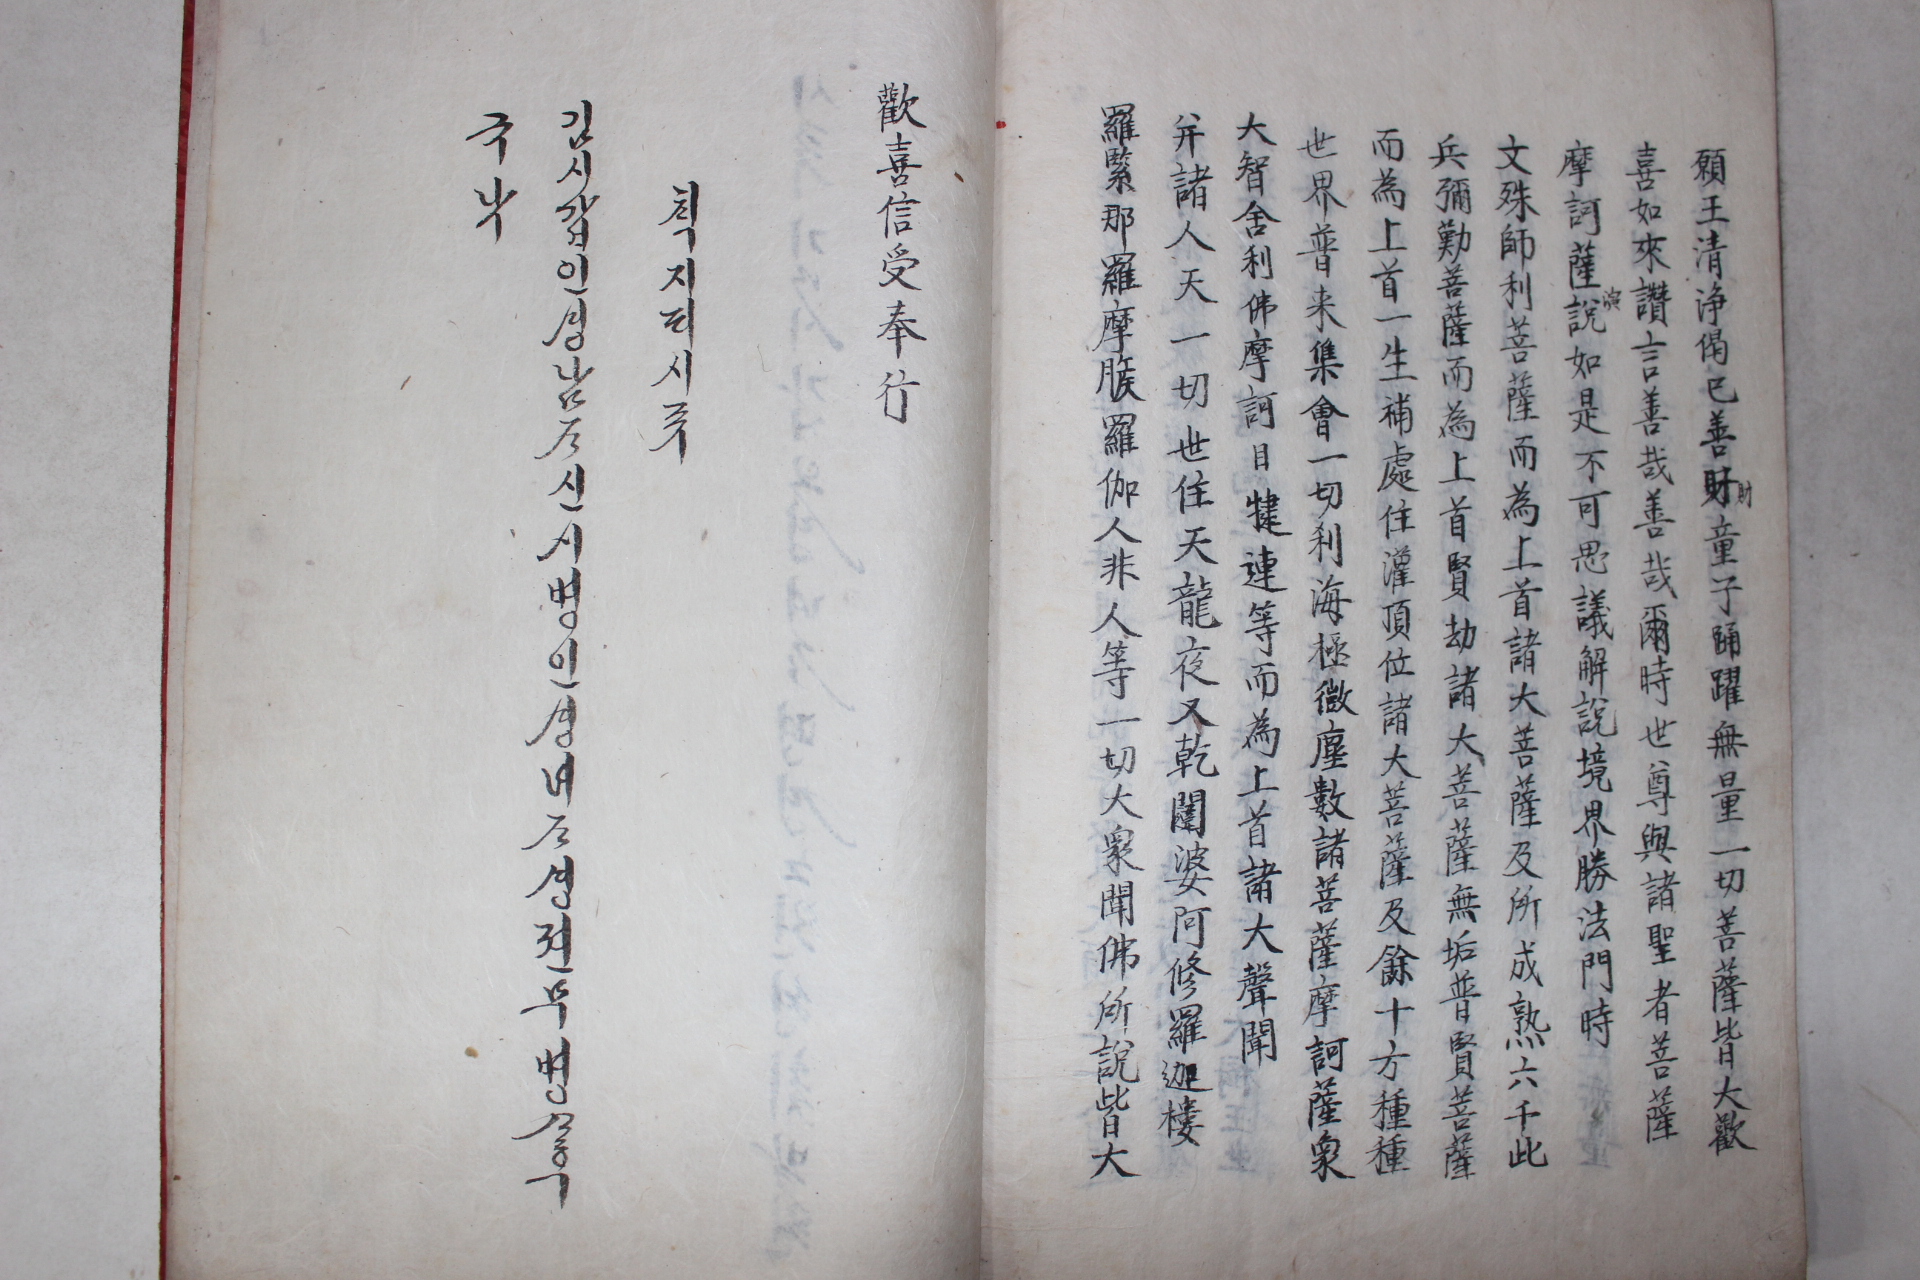 願王清淨偈已善財童子踊躍無量一切菩薩皆大歡
財
喜如來讚言善哉善哉爾時世尊與諸聖者菩薩
摩訶薩說如是不可思議解說境界勝法門時
演
文殊師利菩薩而為上首諸大菩薩及所成熟六千此
兵彌勤菩薩而為上首賢劫諸大菩薩無垢普賢菩薩
而為上首一生補處住灌頂位諸大菩薩及餘十方種種
世界普来集會一切刹海極微塵數諸菩薩摩訶薩衆
大智舍利佛摩訶目犍連等而為上首諸大聲聞
并諸人天一切世住天龍夜叉乾闥婆阿修羅迦樓
羅緊那羅摩睺羅伽人非人等一切大衆聞佛所說皆大
歡喜信受奉行
칙지퇴시쥬
김시갑인성남ᄌ신시병인성녀ᄌ성젼부병
극낙